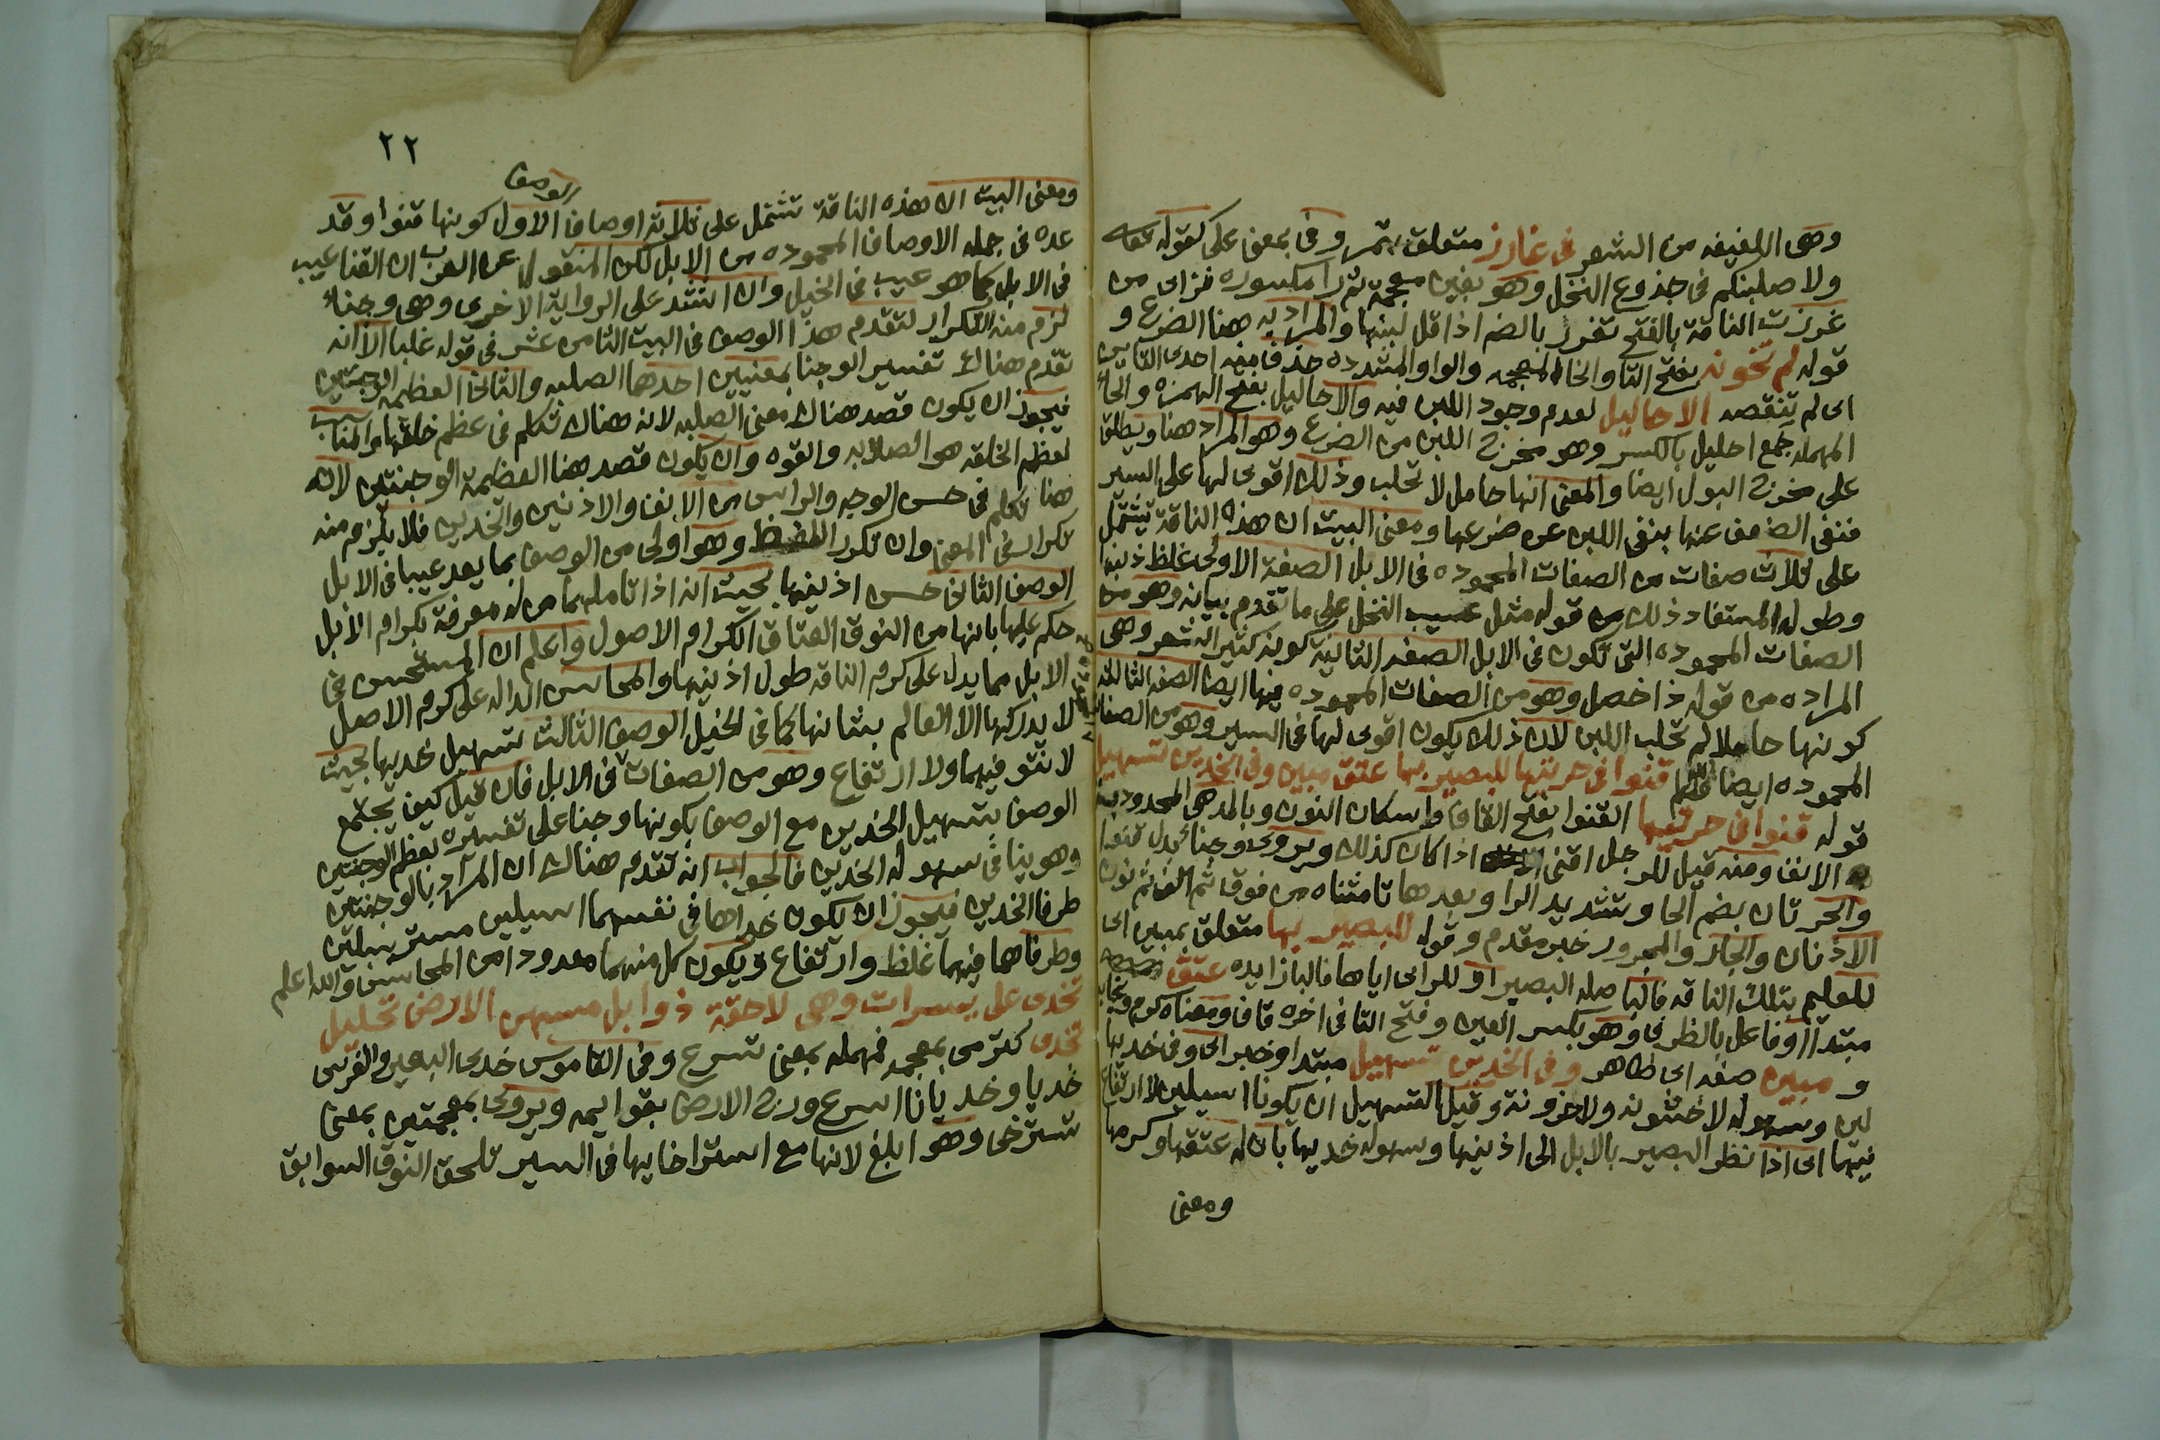 وهى اللفيفه من الشعر فى غارز متعلق بتمر وفى بمعنى على كقوله تعالى
ولاصلبنكم فى جذوع النخل وهو بغين معجمة ثم را مكسوره فزاى من
غرزت الناقة بالفتح تغرز بالضم اذا قل لبنها والمراد به هنا الضرع و
قوله لم تخونه بفتح التا والخا المعجمه والواو المشدده حذف منه احدى التاين
اى لم تنقصه الاحاليل لعدم وجود اللبن فيه والاحاليل بفتح الهمزه والحا
المهمله جمع احليل بالكسر وهو مخرج اللبن من الضرع وهو المراد هنا ويطلق
على مخرج البول ايضا والمعنى انها حامل لا تحلب وذلك اقوى لها على السير
فنفى الضعف عنها بنفى اللبن عن ضرعها ومعنى البيت ان هذه الناقة تشتمل
على ثلاث صفات من الصفات المحموده فى الابل الصفة الاولى غلظ ذنبها
وطوله المستفاد ذلك من قوله مثل عسيب النخل على ما تقدم بيانه وهو من
الصفات المحموده التى تكون فى الابل الصفه الثانية كونه كثير الشعر وهى
المراده من قوله ذا خصل وهو من الصفات المحموده فيها ايضا الصفه الثالثه
كونها حاملا لم تحلب اللبن لان ذلك يكون اقوى لها فى السير وهو من الصفات
المحموده ايضا قنوا فى حرتيها للبصير بها عتق مبين وفى الخدين تسهيل
قوله قنوا فى حرتيها القنوا بفتح القاف واسكان النون وبالمد هى المحدودبة
الانف ومنه قيل للرجل اقنى اذا كان كذلك ويروى وجنا بدل قنوا
والحرتان بضم الحا وتشديد الرا وبعدها تا مثناه من فوق ثم الف ثم نون
الاذنان والجار والمجرور خبر مقدم وقوله للبصير بها متعلق بمبين اى
للعليم بتلك الناقه فالبا صله البصير او للراى اياها فالبا زايده عتق
مبتدا او فاعل بالظرف وهو بكسر العين وفتح التا فى اخره قاف ومعناه كرم ونجابه
و مبين صفه اى ظاهر وفى الخدين تسهيل مبتدا وخبر اى وفى خديها
لين وسهوله لا خشونه ولا حزونة وقيل التسهيل ان يكونا اسيلين لا ارتفاع
فيهما اى اذا نظر البصير بالابل الى اذنيها وسهوله خديها بان له عتقها وكرمها
ومعنى
٢٢
الوصف
ومعنى البيت ان هذه الناقة تشتمل على ثلاثة اوصاف الاول كونها قنوا وقد
عده فى جمله الاوصاف المحموده من الابل لكن المنقول عن العرب ان القنا عيب
فى الابل كما هو عيب فى الخيل وان انشد على الرواية الاخرى وهى وجناء
لزم منه التكرار لتقدم هذا الوصف فى البيت الثامن عشر فى قوله غلبا الا انه
تقدم هناك تفسير الوجنا بمعنيين احدهما الصلبه والثانى العظيمه الوجنتين
فيجوز ان يكون قصد هناك معنى الصلبه لانه هناك تكلم فى عظم خلقها والمناسب
لعظم الخلقه هو الصلابه والقوه وان يكون قصد هنا العظيمة الوجنتين لانه
هنا تكلم فى حسن الوجه والراس من الانف والاذنين والخدين فلا يلزم منه
تكرار فى المعنى وان تكرر اللفظ وهو اولى من الوصف بما يعد عيبا فى الابل
الوصف الثانى حسن اذنيها بحيث انه اذا تاملهما من له معرفة بكرام الابل
حكم عليها بانها من النوق العتاق الكرام الاصول واعلم ان المستحسن فى
الابل مما يدل على كرم الناقه طول اذنيها والمحاسن الداله على كرم الاصل
لا يدركها الا العالم بشانها كما فى الخيل الوصف الثالث تسهيل خديها بحيث
لا نتو فيهما ولا ارتفاع وهو من الصفات فى الابل فان قيل كيف يجتمع
الوصف بتسهيل الخدين مع الوصف بكونها وجنا على تفسيره بعظم الوجنتين
وهو ينافى سهولة الخدين فالجواب انه تقدم هناك ان المراد بالوجنتين
طرفا الخدين فيجوز ان يكون خداها فى نفسهما اسيلين مسترسلين
وطرفاهما فيهما غلظ وارتفاع ويكون كل منهما معدودا من المحاسن والله اعلم
تخدى على يسرات وهى لاحقة ذوابل مسهن الارض تحليل
تخدى كترمى بمعجمه فمهمله بمعنى تسرع وفى القاموس خدى البعير والفرس
خديا وخديانا اسرع وزج الارض بقوايمه ويروى بمعجمتين بمعنى
تسترخى وهو ابلغ لانها مع استرخايها فى السير تلحق النوق السوابق